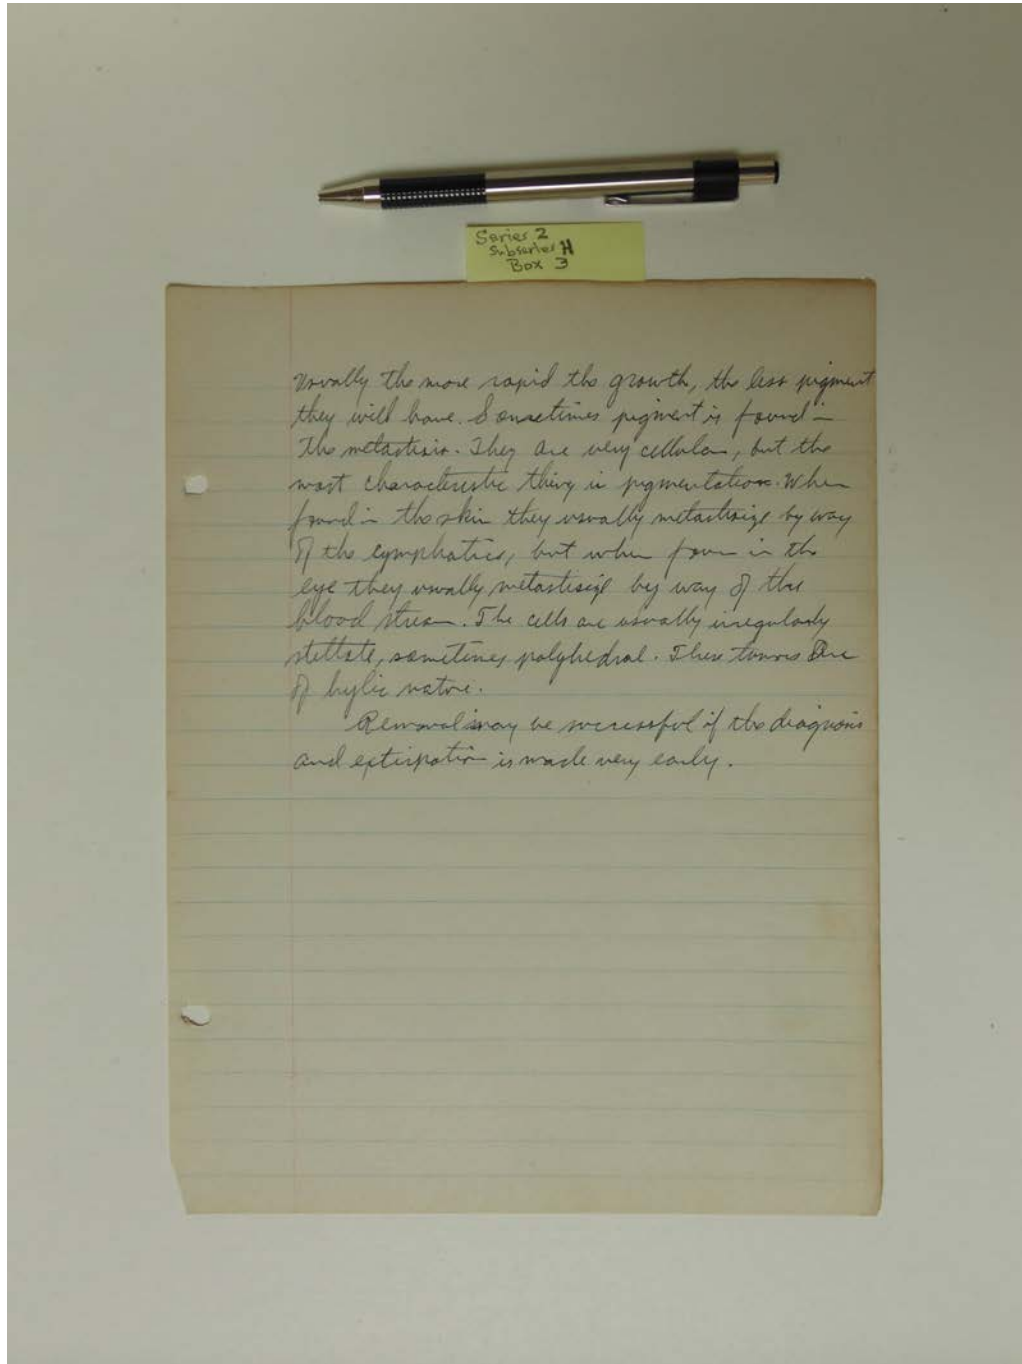 Series 2
Subseries H
Box 3
Usually the more rapid the growth, the less pigment
they will have. Sometimes pigment is found in
the metastisis. They are very cellular, but the
most characteristic thing is pigmentation. When
found in the skin they usually metastisize by way
of the lymphatics, but when foun in the
eye they usually metastisize by way of the
blood stream. The cells are usually irregularly
stellate, sometimes polyhedral. These tumors are
of hylic nature.
Removal may be successful if the diagnosis
and extirpation is made very early.